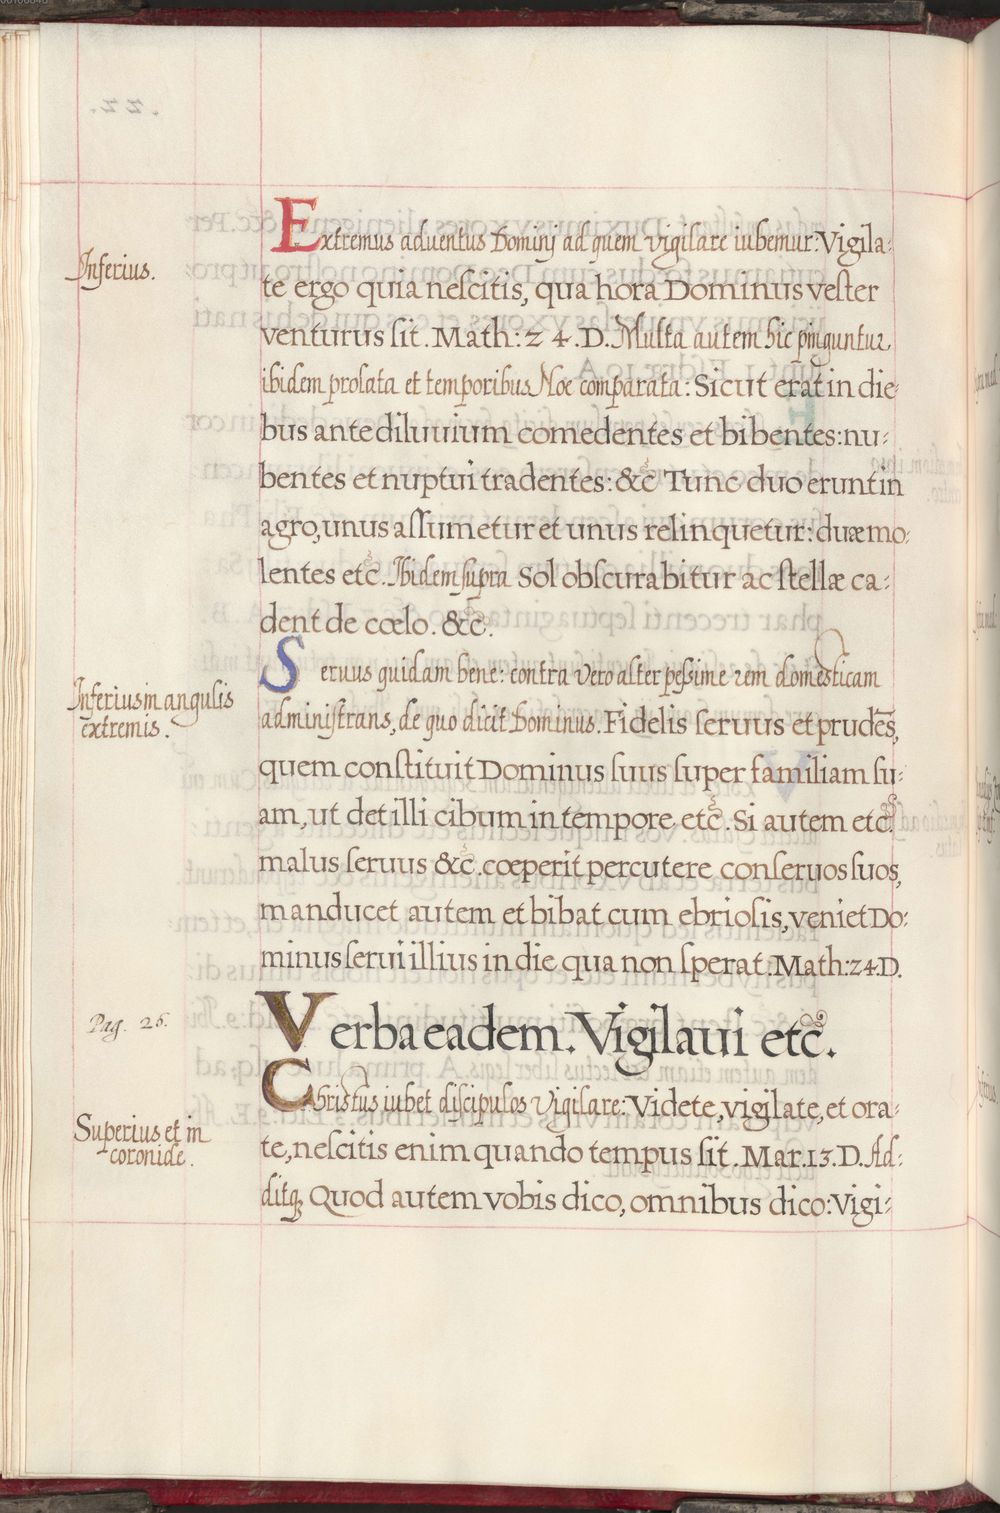 Inferius.
Extremus aduentus Dominj ad quem vigilare iubemur: Vigila-
te ergo quia nescitis, qua hora Dominus vester
venturus sit. Math: 24. D. Multa autem hic pinguntur,
ibidem prolata et temporibus Noe comparata: Sicut erat in die-
bus ante diluuium comedentes et bibentes: nu-
bentes et nuptui tradentes: &c Tunc duo erunt in
agro, unus assumetur et unus relinquetur: duæ mo-
lentes etc. Ibidem supra Sol obscurabitur ac stellæ ca-
dent de cœlo. &c.
Inferius in angulis
extremis.
Seruus quidam bene: contra vero alter pessime rem domesticam
administrans, de quo dicit Dominus. Fidelis seruus et prudēs,
quem constituit Dominus suus super familiam su-
am, ut det illi cibum in tempore etc. Si autem etc.
malus seruus &c. cœperit percutere conseruos suos,
manducet autem et bibat cum ebriosis, veniet Do-
minus serui illius in die qua non sperat: Math: 24. D.
Pag. 26.
Verba eadem. Vigilaui etc.
Superius et in
coronide.
Christus iubet discipulos Vigilare: Videte, vigilate, et ora-
te, nescitis enim quando tempus sit. Mar. 13. D. Ad-
ditq; Quod autem vobis dico, omnibus dico: Vigi-